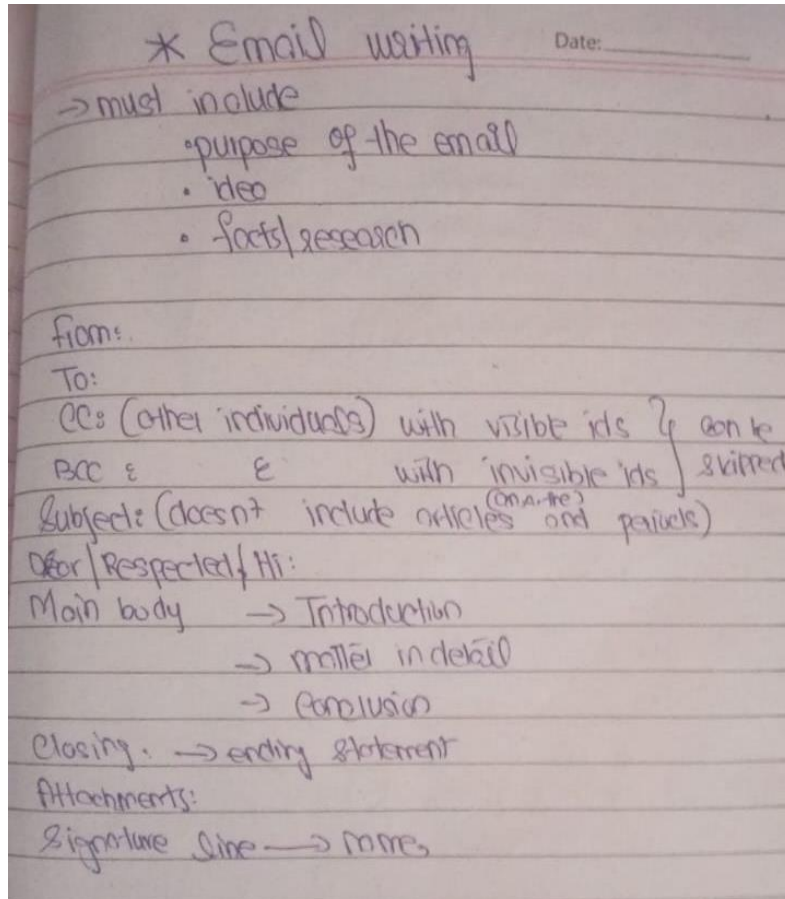 * Email writing
Date:
→ must include
• purpose of the email
• idea
• facts/research
from:
To:
CC: (other individuals) with visible ids } can be
BCC : " with invisible ids } skipped
Subject: (doesn't include articles (an, a, the) and periods)
Dear/Respected/Hi:
Main body → Introduction
→ matter in detail
→ Conclusion
Closing. → ending statement
Attachments:
Signature line → name